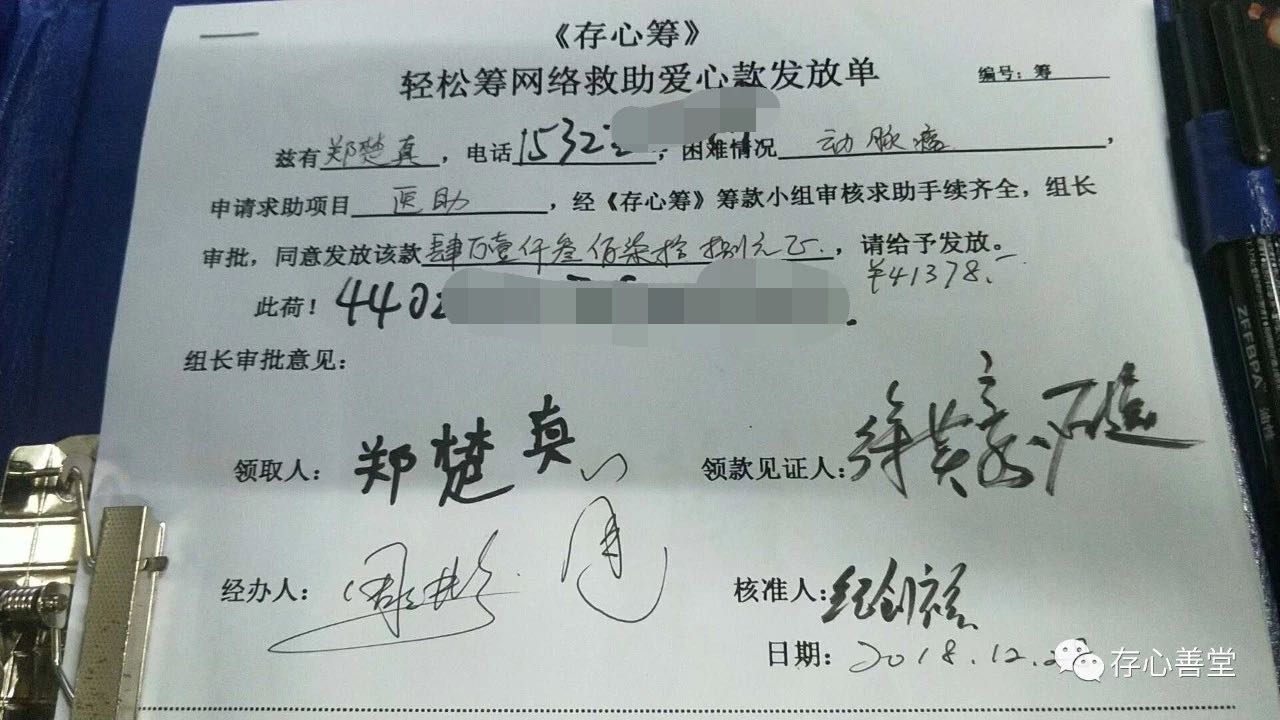 《存心筹》
轻松筹网络救助爱心款发放单
编号：筹
兹有郑楚真，电话1532，困难情况动脉瘤，
申请求助项目医助，经《存心筹》筹款小组审核求助手续齐全，组长
审批，同意发放该款肆万壹仟叁佰柒拾捌元正，请给予发放。
¥41378.-
此荷！ 440
组长审批意见：
领取人：郑楚真
领款见证人：
经办人：
核准人：
日期：2018.12.2
存心善堂
ZEBRA